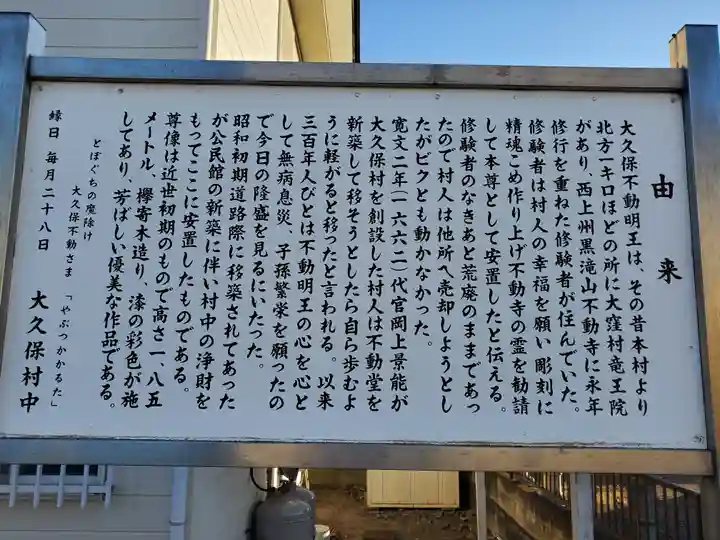 由来
大久保不動明王は、その昔本村より
北方一キロほどの所に大窪村竜王院
があり、西上州黒滝山不動寺に永年
修行を重ねた修験者が住んでいた。
修験者は村人の幸福を願い彫刻に
精魂こめ作り上げ不動寺の霊を勧請
して本尊として安置したと伝える。
修験者のなきあと荒廃のままであっ
たので村人は他所へ売却しようとし
たがビクとも動かなかった。
寛文二年(一六六二)代官岡上景能が
大久保村を創設した村人は不動堂を
新築して移そうとしたら自ら歩むよ
うに軽がると移ったと言われる。以来
三百年人びとは不動明王の心を心と
して無病息災、子孫繁栄を願ったの
で今日の隆盛を見るにいたった。
昭和初期道路際に移築されてあった
が公民館の新築に伴い村中の浄財を
もってここに安置したものである。
尊像は近世初期のもので高さ一、八五
メートル、欅寄木造り、漆の彩色が施
してあり、芳ばしい優美な作品である。
とぼぐちの魔除け
大久保不動さま 「やぶつかかるた」
縁日 毎月二十八日 大久保村中